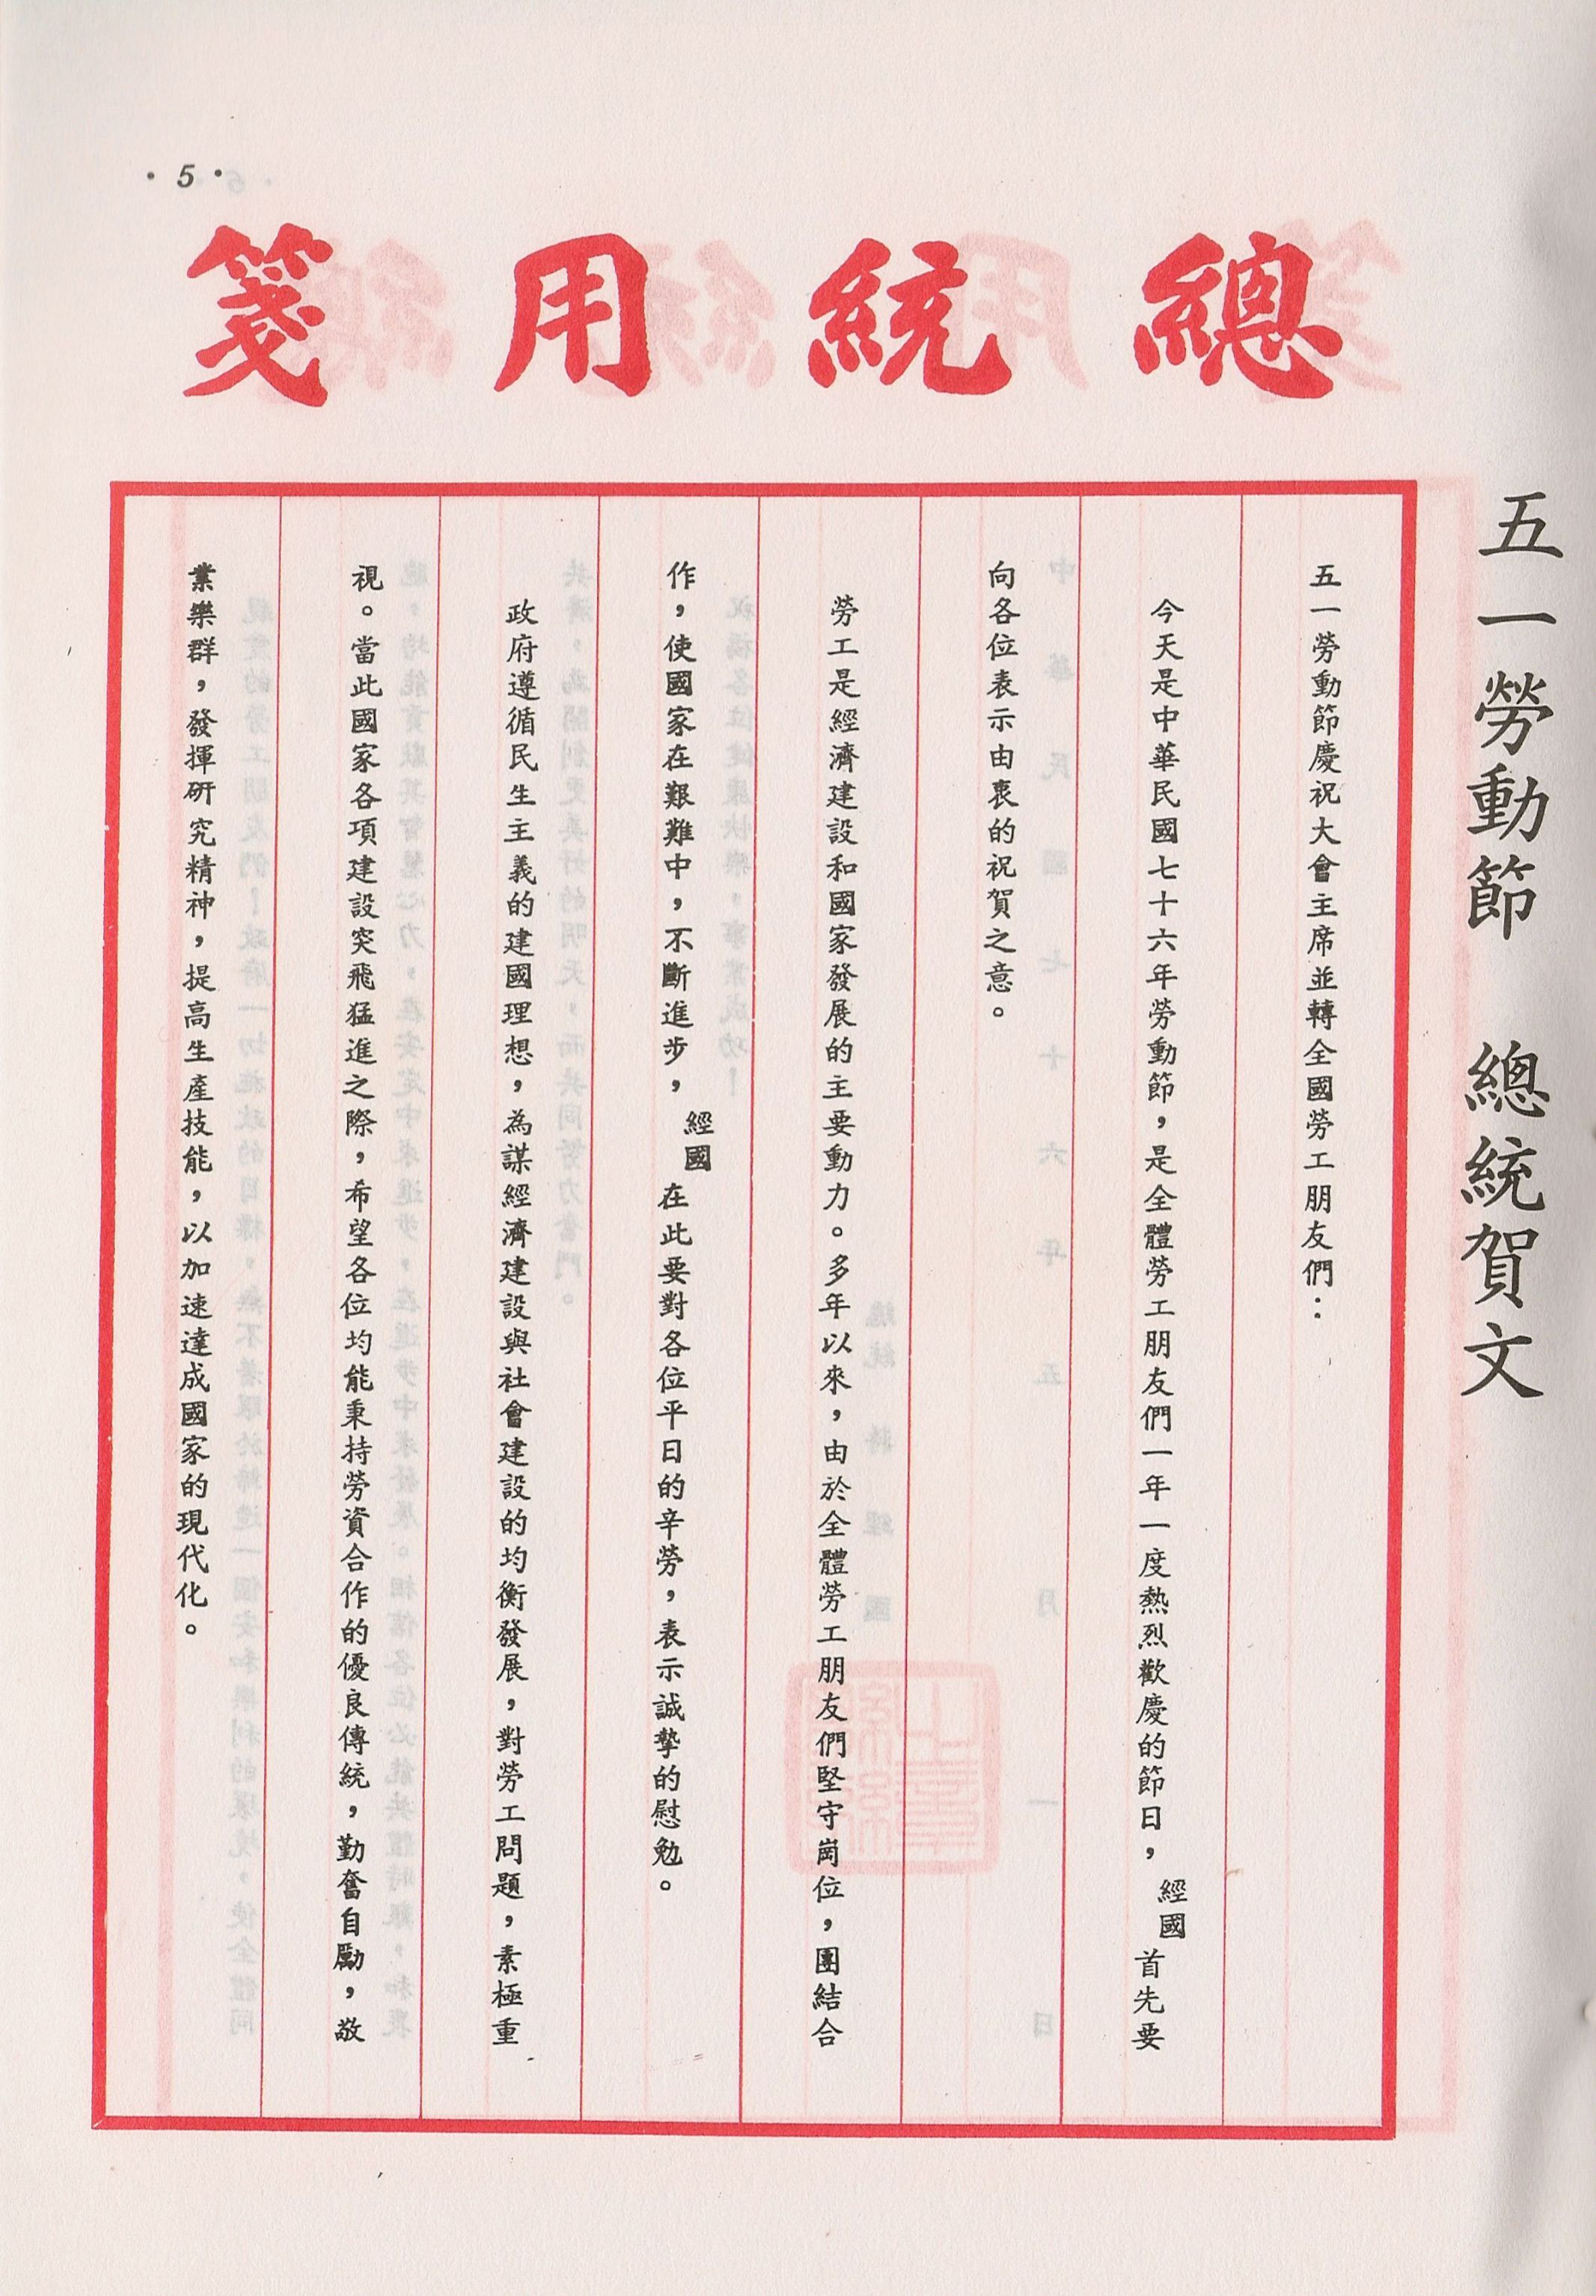 ·5·
五一勞動節　總統賀文
總統用箋
五一勞動節慶祝大會主席並轉全國勞工朋友們：
今天是中華民國七十六年勞動節，是全體勞工朋友們一年一度熱烈歡慶的節日，經國首先要
向各位表示由衷的祝賀之意。
勞工是經濟建設和國家發展的主要動力。多年以來，由於全體勞工朋友們堅守崗位，團結合
作，使國家在艱難中，不斷進步，經國在此要對各位平日的辛勞，表示誠摯的慰勉。
政府遵循民生主義的建國理想，為謀經濟建設與社會建設的均衡發展，對勞工問題，素極重
視。當此國家各項建設突飛猛進之際，希望各位均能秉持勞資合作的優良傳統，勤奮自勵，敬
業樂群，發揮研究精神，提高生產技能，以加速達成國家的現代化。